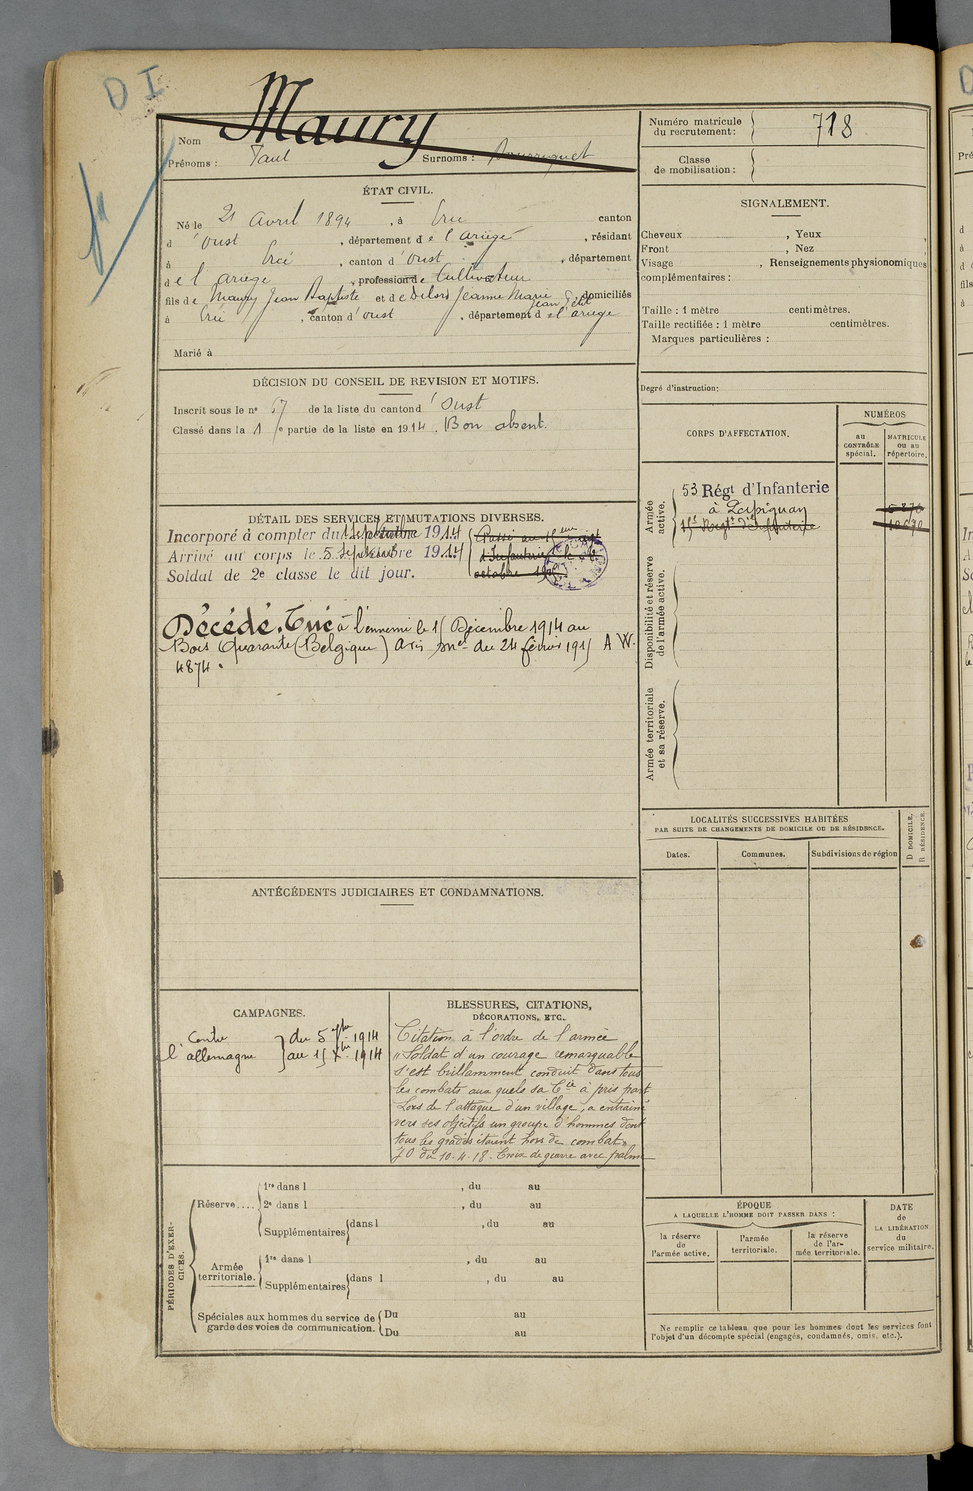 D I
Maury
Nom
Prénoms : Paul Surnoms :
Numéro matricule
du recrutement : 718
Classe
de mobilisation :
ÉTAT CIVIL.
Né le 21 Avril 1894 , à Ercé canton
d 'Oust , département de l'ariège , résidant
à Ercé , canton d'Oust , département
de l'ariège , profession de Cultivateur
fils de Maury Jean Baptiste et de Jeanne Marie domiciliés
à Ercé , canton d'oust , département de l'ariège
Marié à
SIGNALEMENT.
Cheveux , Yeux ,
Front , Nez
Visage , Renseignements physionomiques
complémentaires :
Taille : 1 mètre centimètres.
Taille rectifiée : 1 mètre centimètres.
Marques particulières :
Degré d'instruction :
DÉCISION DU CONSEIL DE REVISION ET MOTIFS.
Inscrit sous le n° 57 de la liste du canton d'Oust
Classé dans la 1re partie de la liste en 1914. Bon absent.
CORPS D'AFFECTATION.
NUMÉROS
au
CONTRÔLE
spécial.
MATRICULE
ou au
répertoire.
Armée
active.
53 Régt d'Infanterie
à Perpignan
15e Régt d'Infanterie
Disponibilité et réserve
de l'armée active.
Armée territoriale
et sa réserve.
DÉTAIL DES SERVICES ET MUTATIONS DIVERSES.
Incorporé à compter du 1 septembre 1914
Arrivé au corps le 5 septembre 1914
Soldat de 2e classe le dit jour.
Passé au 15eme
d'Infanterie le
octobre
Décédé. Tué à l'ennemi le 15 Décembre 1914 au
Bois Quarante (Belgique) avis mel du 24 février 1915 A W.
4874.
LOCALITÉS SUCCESSIVES HABITÉES
PAR SUITE DE CHANGEMENTS DE DOMICILE OU DE RÉSIDENCE.
Dates.
Communes.
Subdivisions de région
D DOMICILE.
R RÉSIDENCE.
ANTÉCÉDENTS JUDICIAIRES ET CONDAMNATIONS.
CAMPAGNES.
Contre
l'allemagne
du 5 7bre 1914
au 15 Xbre 1914
BLESSURES, CITATIONS,
DÉCORATIONS, ETC.
Citation à l'ordre de l'armée
"Soldat d'un courage remarquable
s'est brillamment conduit dans tous
les combats aux quels sa Cie à pris part
Lors de l'attaque d'un village, a entrainé
vers ses objectifs un groupe d'hommes dont
tous les gradés étaient hors de combat"
JO du 10.4.18. Croix de guerre avec palme
PÉRIODES D'EXER-
CICES.
Réserve....
1re dans l , du au
2e dans l , du au
Supplémentaires dans l , du au
Armée
territoriale.
1re dans l , du au
Supplémentaires dans l , du au
Spéciales aux hommes du service de
garde des voies de communication.
Du au
Du au
ÉPOQUE
A LAQUELLE L'HOMME DOIT PASSER DANS :
la réserve
de
l'armée active.
l'armée
territoriale.
la réserve
de l'ar-
mée territoriale.
DATE
de
LA LIBÉRATION
du
service militaire.
Ne remplir ce tableau que pour les hommes dont les services font
l'objet d'un décompte spécial (engagés, condamnés, omis, etc.).